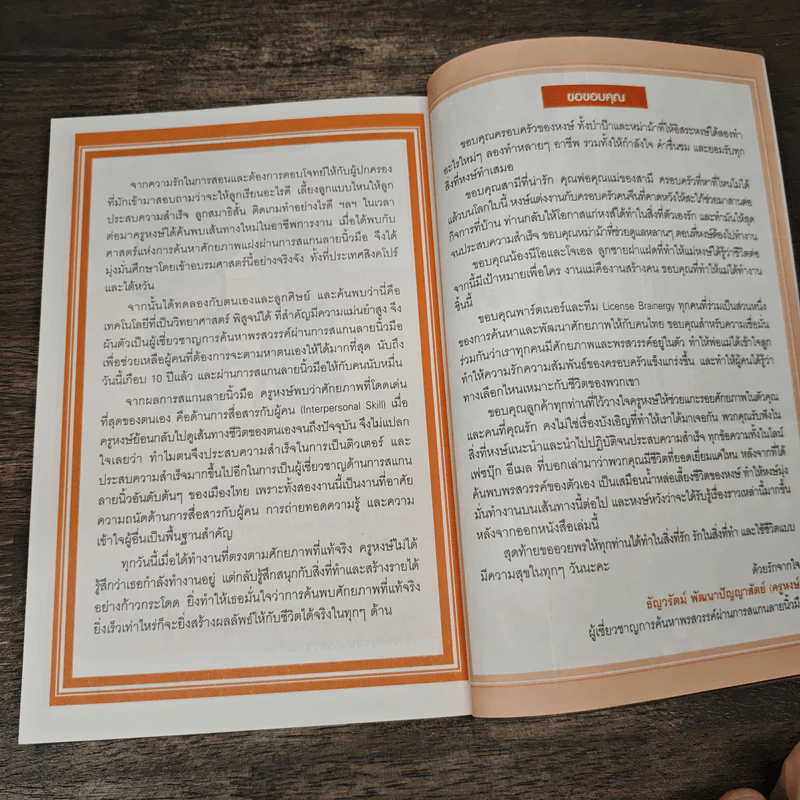 จากความรักในการสอนและต้องการตอบโจทย์ให้กับผู้ปกครอง
ที่มักเข้ามาสอบถามว่าจะให้ลูกเรียนอะไรดี เลี้ยงลูกแบบไหนให้ลูก
ประสบความสำเร็จ ลูกสมาธิสั้น ติดเกมทำอย่างไรดี ฯลฯ ในเวลา
ต่อมาครูหงษ์ได้ค้นพบเส้นทางใหม่ในอาชีพการงาน เมื่อได้พบกับ
ศาสตร์แห่งการค้นหาศักยภาพแฝงผ่านการสแกนลายนิ้วมือ จึงได้
มุ่งมั่นศึกษาโดยเข้าอบรมศาสตร์นี้อย่างจริงจัง ทั้งที่ประเทศสิงคโปร์
และไต้หวัน
จากนั้นได้ทดลองกับตนเองและลูกศิษย์ และค้นพบว่านี่คือ
เทคโนโลยีที่เป็นวิทยาศาสตร์ พิสูจน์ได้ ที่สำคัญมีความแม่นยำสูง จึง
ผันตัวเป็นผู้เชี่ยวชาญการค้นหาพรสวรรค์ผ่านการสแกนลายนิ้วมือ
เพื่อช่วยเหลือผู้คนที่ต้องการจะตามหาตนเองให้ได้มากที่สุด นับถึง
วันนี้เกือบ 10 ปีแล้ว และผ่านการสแกนลายนิ้วมือให้กับคนนับหมื่น
จากผลการสแกนลายนิ้วมือ ครูหงษ์พบว่าศักยภาพที่โดดเด่น
ที่สุดของตนเอง คือด้านการสื่อสารกับผู้คน (Interpersonal Skill) เมื่อ
ครูหงษ์ย้อนกลับไปดูเส้นทางชีวิตของตนเองจนถึงปัจจุบัน จึงไม่แปลก
ใจเลยว่า ทำไมตนจึงประสบความสำเร็จในการเป็นติวเตอร์ และ
ประสบความสำเร็จมากขึ้นไปอีกในการเป็นผู้เชี่ยวชาญด้านการสแกน
ลายนิ้วอันดับต้นๆ ของเมืองไทย เพราะทั้งสองงานนี้เป็นงานที่อาศัย
ความถนัดด้านการสื่อสารกับผู้คน การถ่ายทอดความรู้ และความ
เข้าใจผู้อื่นเป็นพื้นฐานสำคัญ
ทุกวันนี้เมื่อได้ทำงานที่ตรงตามศักยภาพที่แท้จริง ครูหงษ์ไม่ได้
รู้สึกว่าเธอกำลังทำงานอยู่ แต่กลับรู้สึกสนุกกับสิ่งที่ทำและสร้างรายได้
อย่างก้าวกระโดด ยิ่งทำให้เธอมั่นใจว่าการค้นพบศักยภาพที่แท้จริง
ยิ่งเร็วเท่าไหร่ก็จะยิ่งสร้างผลลัพธ์ให้กับชีวิตได้จริงในทุกๆ ด้าน
ขอขอบคุณ
ขอบคุณครอบครัวของหงษ์ ทั้งป่าป๊าและหม่าม้าที่ให้อิสระหงษ์ได้ลองทำ
อะไรใหม่ๆ ลองทำหลายๆ อาชีพ รวมทั้งให้กำลังใจ คำชื่นชม และยอมรับทุก
สิ่งที่หงษ์ทำเสมอ
ขอบคุณสามีที่น่ารัก คุณพ่อคุณแม่ของสามี ครอบครัวที่หาที่ไหนไม่ได้
แล้วบนโลกใบนี้ หงษ์แต่งงานกับครอบครัวคนจีนที่คาดหวังให้สะใภ้ช่วยมาสานต่อ
กิจการที่บ้าน ท่านกลับให้โอกาสแก่หงส์ได้ทำในสิ่งที่ตัวเองรัก และทำมันให้สุด
จนประสบความสำเร็จ ขอบคุณหม่าม้าที่ช่วยดูแลหลานๆ ตอนที่หงษ์ต้องไปทำงาน
ขอบคุณน้องนีโอและโจเอล ลูกชายฝาแฝดที่ทำให้แม่หงษ์ได้รู้ว่าชีวิตต่อ
จากนี้มีเป้าหมายเพื่อใคร งานแม่คืองานสร้างคน ขอบคุณที่ทำให้แม่ได้ทำงาน
ชิ้นนี้
ขอบคุณพาร์ตเนอร์และทีม License Brainergy ทุกคนที่ร่วมเป็นส่วนหนึ่ง
ของการค้นหาและพัฒนาศักยภาพให้กับคนไทย ขอบคุณสำหรับความเชื่อมั่น
ร่วมกันว่าเราทุกคนมีศักยภาพและพรสวรรค์อยู่ในตัว ทำให้พ่อแม่ได้เข้าใจลูก
ทำให้ความรักความสัมพันธ์ของครอบครัวแข็งแกร่งขึ้น และทำให้ผู้คนได้รู้ว่า
ทางเลือกไหนเหมาะกับชีวิตของพวกเขา
ขอบคุณลูกค้าทุกท่านที่ไว้วางใจครูหงษ์ให้ช่วยแกะรอยศักยภาพในตัวคุณ
และคนที่คุณรัก คงไม่ใช่เรื่องบังเอิญที่ทำให้เราได้มาเจอกัน พวกคุณรับฟังใน
สิ่งที่หงษ์แนะนำและนำไปปฏิบัติจนประสบความสำเร็จ ทุกข้อความทั้งในไลน์
เฟซบุ๊ก อีเมล ที่บอกเล่ามาว่าพวกคุณมีชีวิตที่ยอดเยี่ยมแค่ไหน หลังจากที่ได้
ค้นพบพรสวรรค์ของตัวเอง เป็นเสมือนน้ำหล่อเลี้ยงชีวิตของหงษ์ ทำให้หงษ์มุ่ง
มั่นทำงานบนเส้นทางนี้ต่อไป และหงษ์หวังว่าจะได้รับรู้เรื่องราวเหล่านี้มากขึ้น
หลังจากออกหนังสือเล่มนี้
สุดท้ายขออวยพรให้ทุกท่านได้ทำในสิ่งที่รัก รักในสิ่งที่ทำ และใช้ชีวิตแบบ
มีความสุขในทุกๆ วันนะคะ
ด้วยรักจากใจ
ธัญวรัตม์ พัฒนาปัญญาสัตย์ (ครูหงษ์
ผู้เชี่ยวชาญการค้นหาพรสวรรค์ผ่านการสแกนลายนิ้วมือ